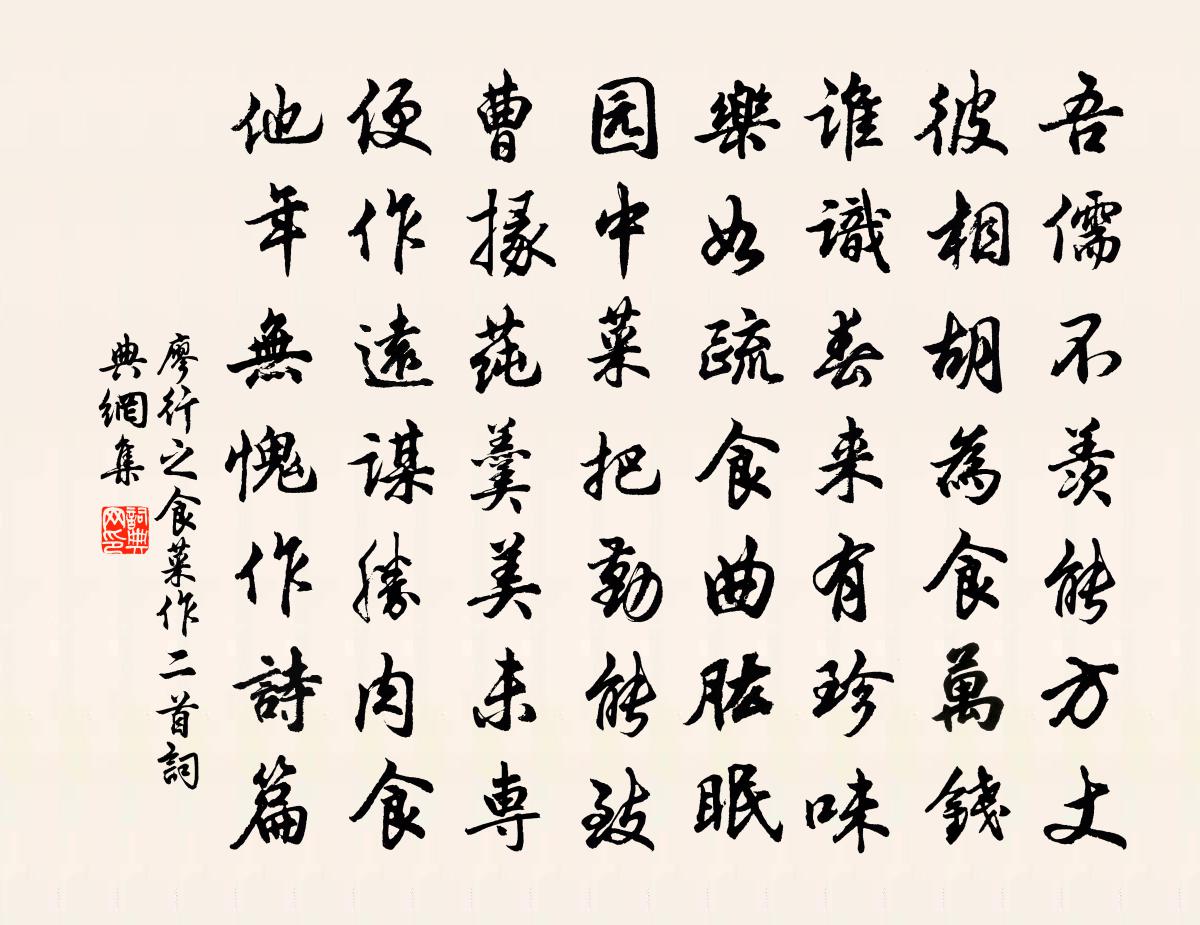 吾儒不羨能方丈
彼相胡為食萬錢
誰識春来有珍味
樂如疏食曲肱眠
园中菜把勤能致
曹掾蒓羹美未専
便作遠謀勝肉食
他年無愧作詩篇
廖行之食菜作二首詞
典網集
詞典
网印